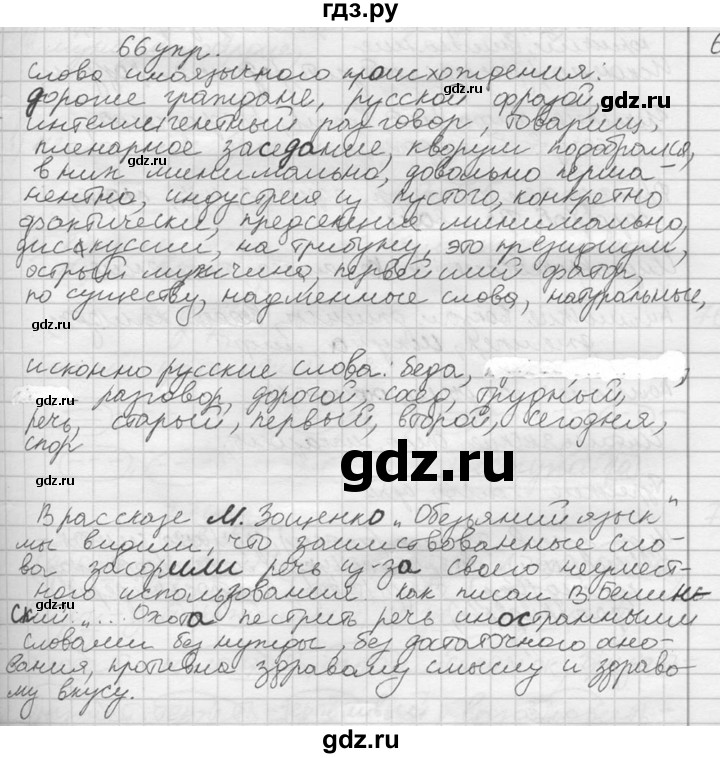 гдз.ру
66 упр.
Слова иноязычного происхождения:
дорогие граждане, русской фразой,
интеллигентный разговор, товарищ,
пленарное заседание, кворум подобрался,
в них минимально, довольно перма-
нентно, индустрия из пустого, конкретно
фактически, предсение минимально,
дискуссий, на трибуну, это президиум,
острый мужчина, первейший фатор,
по существу, надменные слова, натуральные,
исконно русские слова: беда,
разговор, дорогой, сосед, трудный,
речь, старый, первый, второй, сегодня,
спор
В рассказе М. Зощенко „Обезьяний язык"
мы видим, что заимствованные сло-
ва засорили речь из-за своего неумест-
ного использования как писал В Белинс-
ский „... Охота пестрить речь иностранными
словами без нужды, без достаточного осно-
вания, противна здравому смыслу и здраво-
му вкусу.
gdz.ru
gdz.ru
gdz.ru
gdz.ru
gdz.ru
gdz.ru
gdz.ru
gdz.ru
gdz.ru
gdz.ru
gdz.ru
gdz.ru
gdz.ru